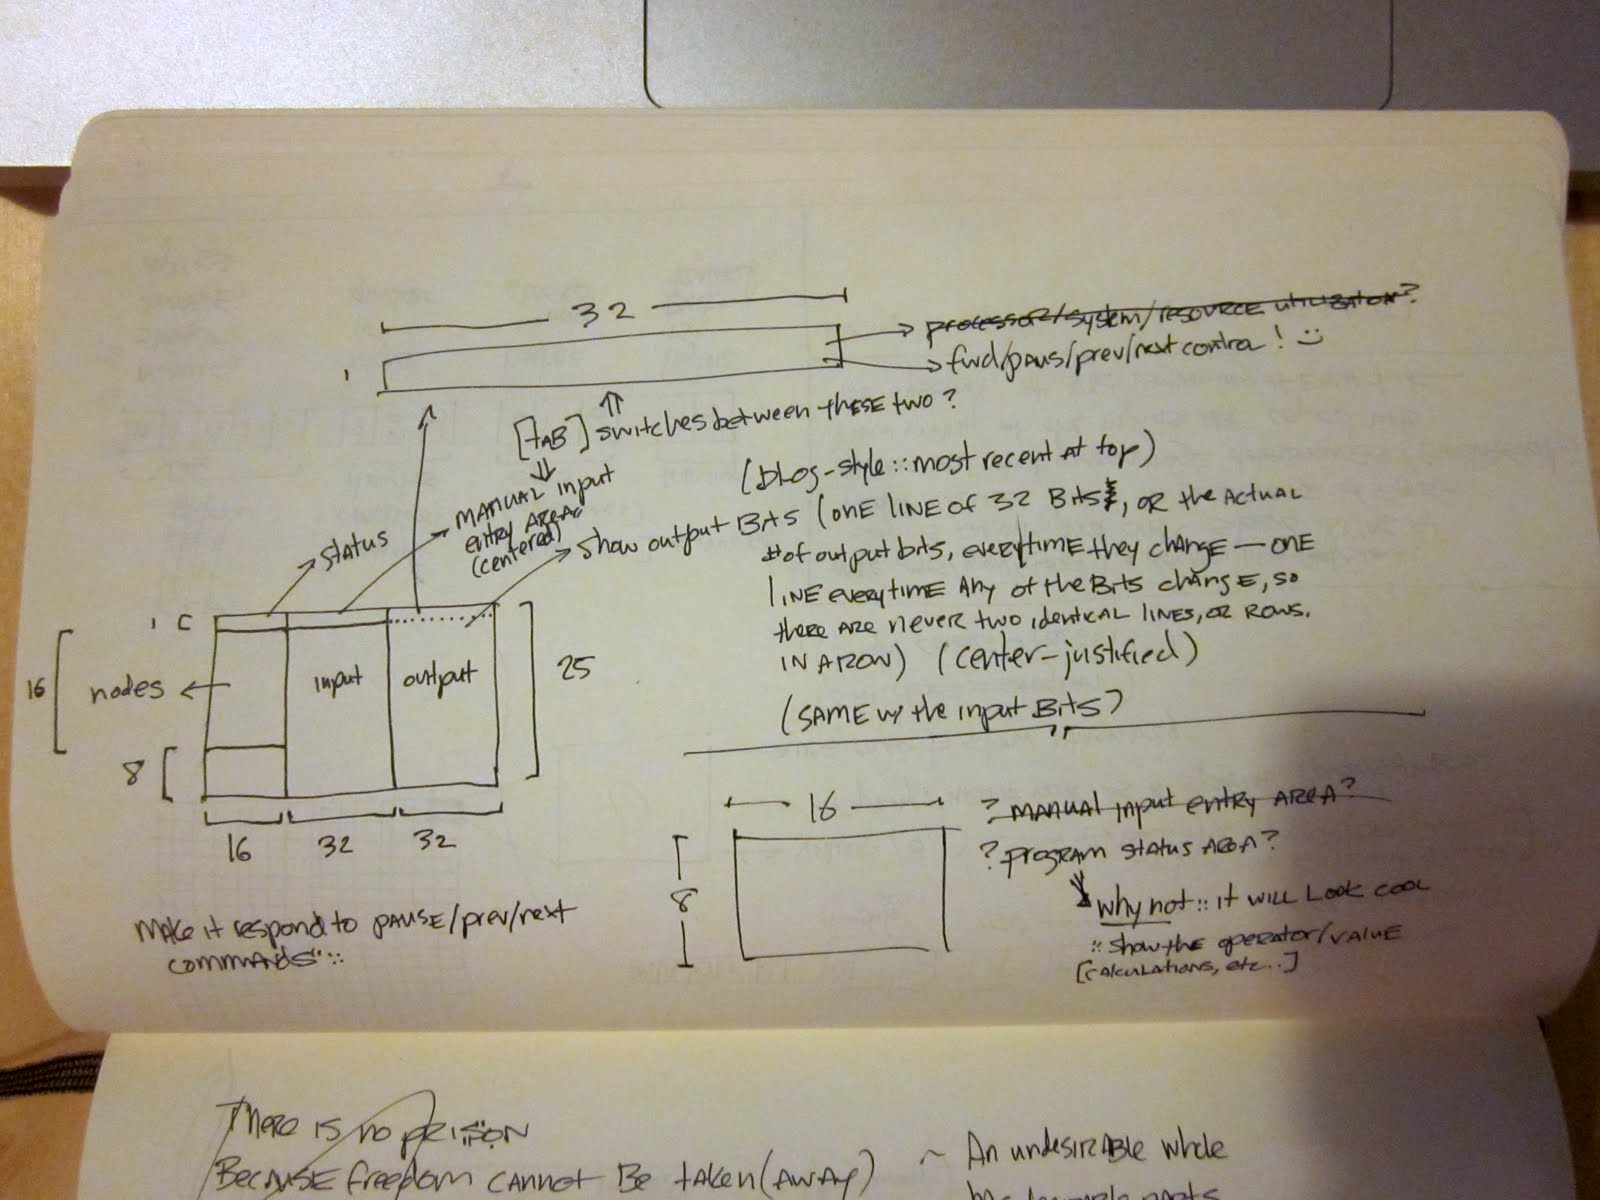 32
processor/system/resource utilization?
1
fwd/paus/prev/next control! :)
[TAB] switches between these two?
(blog-style :: most recent at top)
MANUAL input
entry AREA
(centered)
status
show output Bits (ONE LINE of 32 Bits, or the ACTUAL
# of output bits, everytime they change — ONE
LINE everytime Any of the Bits change, so
there are never two identical lines, or rows,
IN A ROW) (center-justified)
(SAME w/ the input Bits)
1
16
nodes
input
output
25
8
16
32
32
16
8
? MANUAL input entry AREA?
? program status AREA?
why not :: it will Look cool
:: show the operator/VALUE
[calculations, etc...]
MAKE it respond to PAUSE/prev/next
commands ::
There is no prison
Because freedom cannot Be taken (AWAY)
~ An undesirable whole
parts